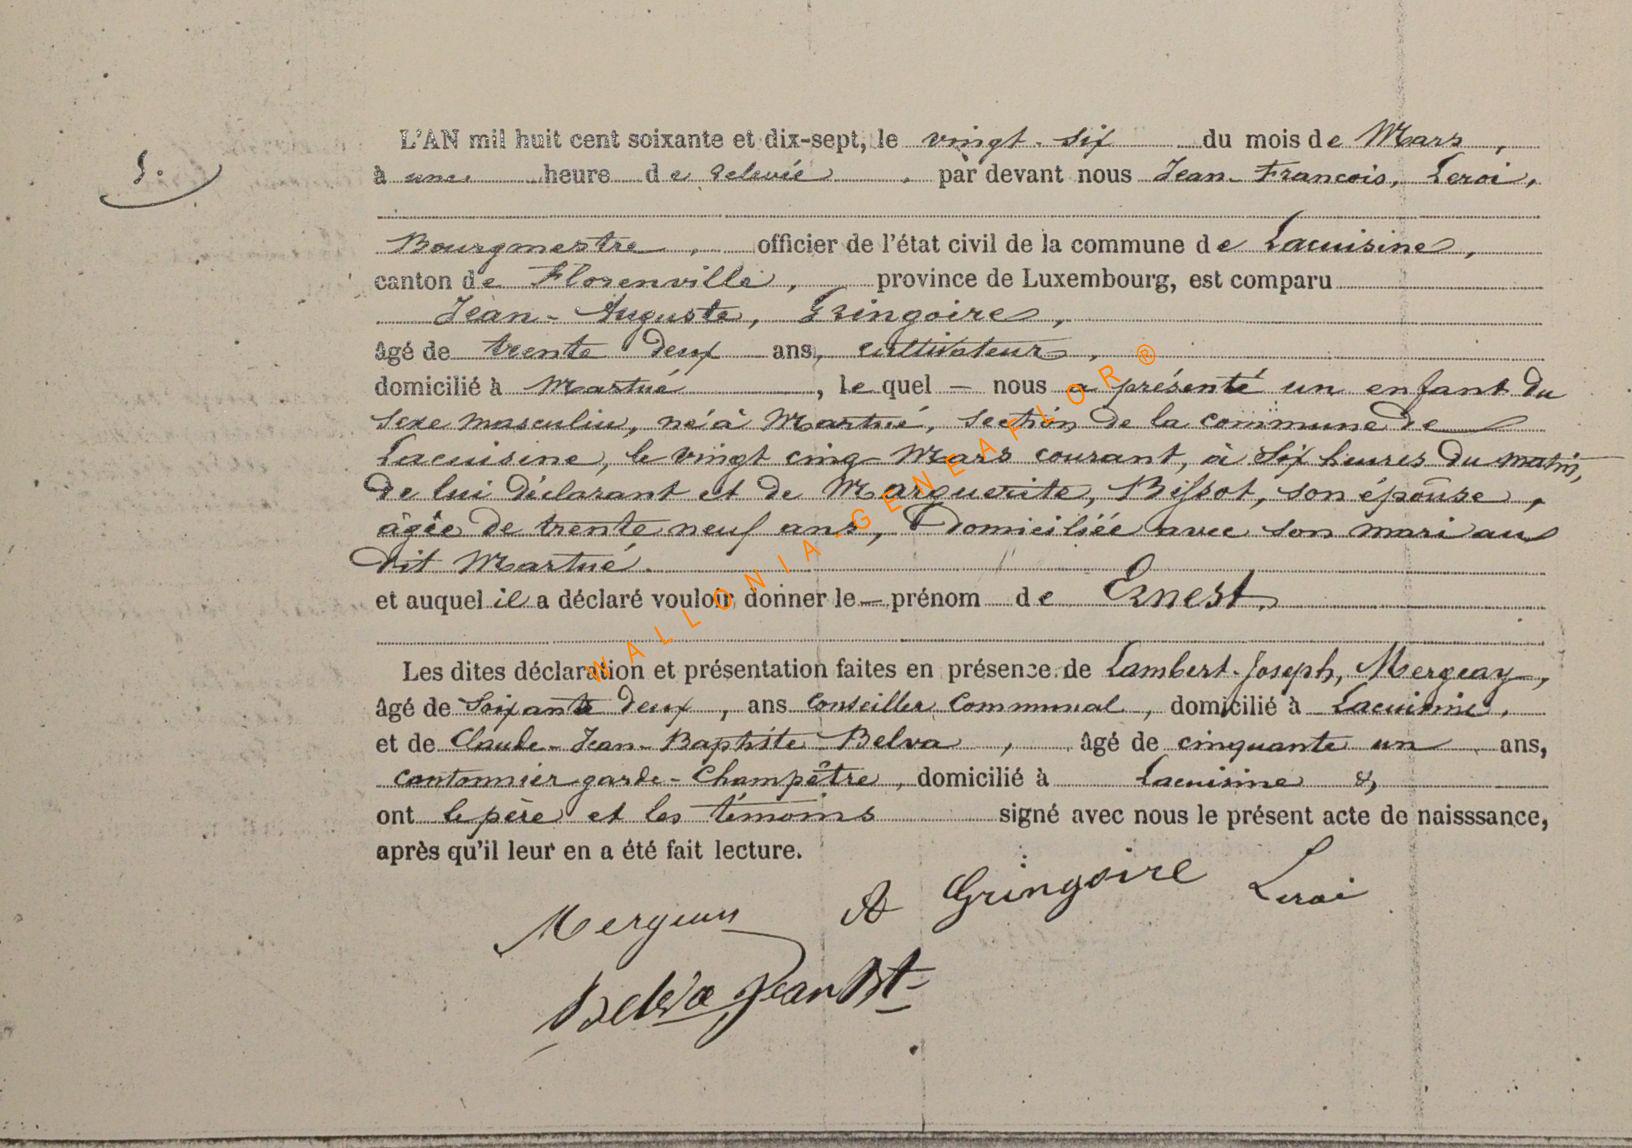 5.
L'AN mil huit cent soixante et dix-sept, le vingt-six du mois de Mars,
à une heure de relevée, par devant nous Jean-François, Leroi,
Bourgmestre, officier de l'état civil de la commune de Lacuisine,
canton de Florenville, province de Luxembourg, est comparu
Jean-Auguste, Gringoire,
âgé de trente deux ans, cultivateur,
domicilié à Martué, le quel — nous a présenté un enfant du
sexe masculin, né à Martué, section de la commune de
Lacuisine, le vingt cinq Mars courant, à six heures du matin,
de lui déclarant et de Marguerite, Bissot, son épouse,
âgée de trente neuf ans, domiciliée avec son mari au
dit Martué.
et auquel il a déclaré vouloir donner le — prénom de Ernest.
Les dites déclaration et présentation faites en présence de Lambert-Joseph, Mergeay,
âgé de soixante deux, ans conseiller communal, domicilié à Lacuisine,
et de Claude-Jean-Baptiste Belva, âgé de cinquante un ans,
cantonnier garde-champêtre, domicilié à Lacuisine &,
ont le père et les témoins signé avec nous le présent acte de naisssance,
après qu'il leur en a été fait lecture.
Mergeay A Gringoire Leroi
Belva Jean Bt
WALLONIA-GENEAFLOR®